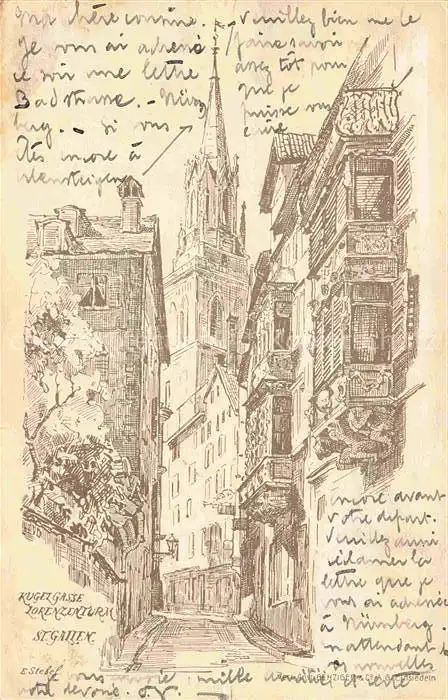 Ma chère cousine.
Je vous ai adressé
ce soir une lettre
Badstrasse. - Nürn
berg. - Si vous
êtes encore à
Veuillez bien me le
faire savoir
assez tôt pour
que je
puisse vous
écrire
encore avant
votre départ.
Veuillez aussi
réclamer la
lettre que je
vous ai adressée
à Nürnberg.
n attendant
nouvelles
je vous envoie mille
votre dévoué.
KUGELGASSE
LORENZENTURM
ST. GALLEN.
E. Stebel
BENZIGER & Co. A.G. Einsiedeln